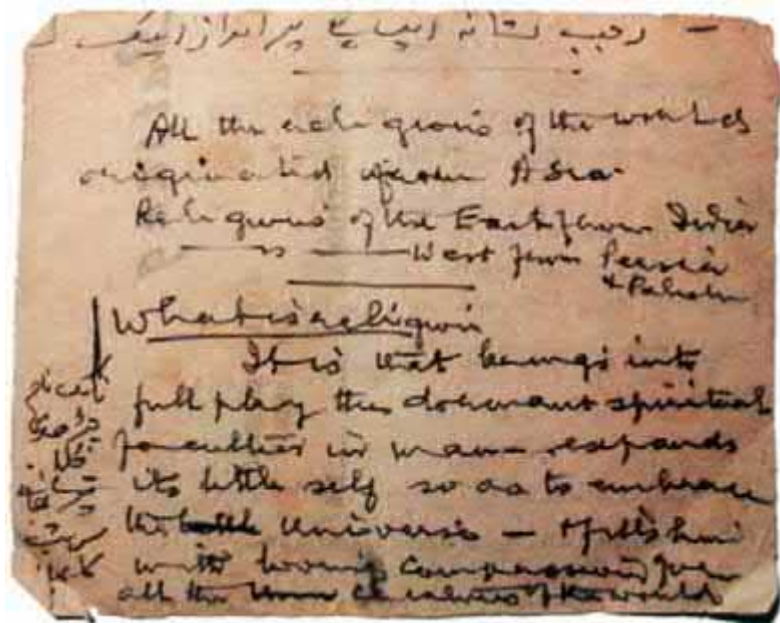 All the religions of the world
originated from Asia.
Religions of the East from India
— " — West from Persia
& Palestine
What is religion
It is that brings into
full play the dormant spiritual
faculties in man — expands
its little self so as to embrace
the universe — & fills him
with loving compassion for
all the creatures of the world